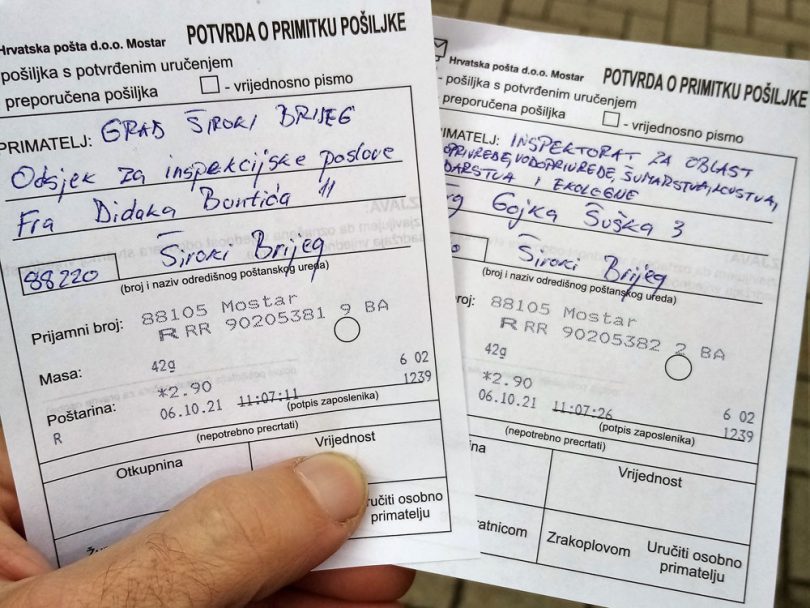 Hrvatska pošta d.o.o. Mostar
POTVRDA O PRIMITKU POŠILJKE
pošiljka s potvrđenim uručenjem
preporučena pošiljka
- vrijednosno pismo
PRIMATELJ: GRAD ŠIROKI BRIJEG
Odsjek za inspekcijske poslove
Fra Didaka Buntića 11
88220 Široki Brijeg
(broj i naziv odredišnog poštanskog ureda)
Prijamni broj: 88105 Mostar
R RR 90205381 9 BA
Masa: 42g
6 02
Poštarina: *2.90
1239
06.10.21 11:07:11 (potpis zaposlenika)
R
(nepotrebno precrtati)
Otkupnina
Vrijednost
uručiti osobno
primatelju
Hrvatska pošta d.o.o. Mostar
POTVRDA O PRIMITKU POŠILJKE
- pošiljka s potvrđenim uručenjem
preporučena pošiljka
- vrijednosno pismo
IMATELJ: INSPEKTORAT ZA OBLAST
OPRIVREDE, VODOPRIVREDE, ŠUMARSTVA,
DARSTVA I
rg Gojka Šuška 3
Široki Brijeg
(broj i naziv odredišnog poštanskog ureda)
broj: 88105 Mostar
R RR 90205382 2 BA
42g
*2.90
6 02
06.10.21 11:07:26
1239
(potpis zaposlenika)
(nepotrebno precrtati)
nina
Vrijednost
ratnicom
Zrakoplovom
Uručiti osobno
primatelju